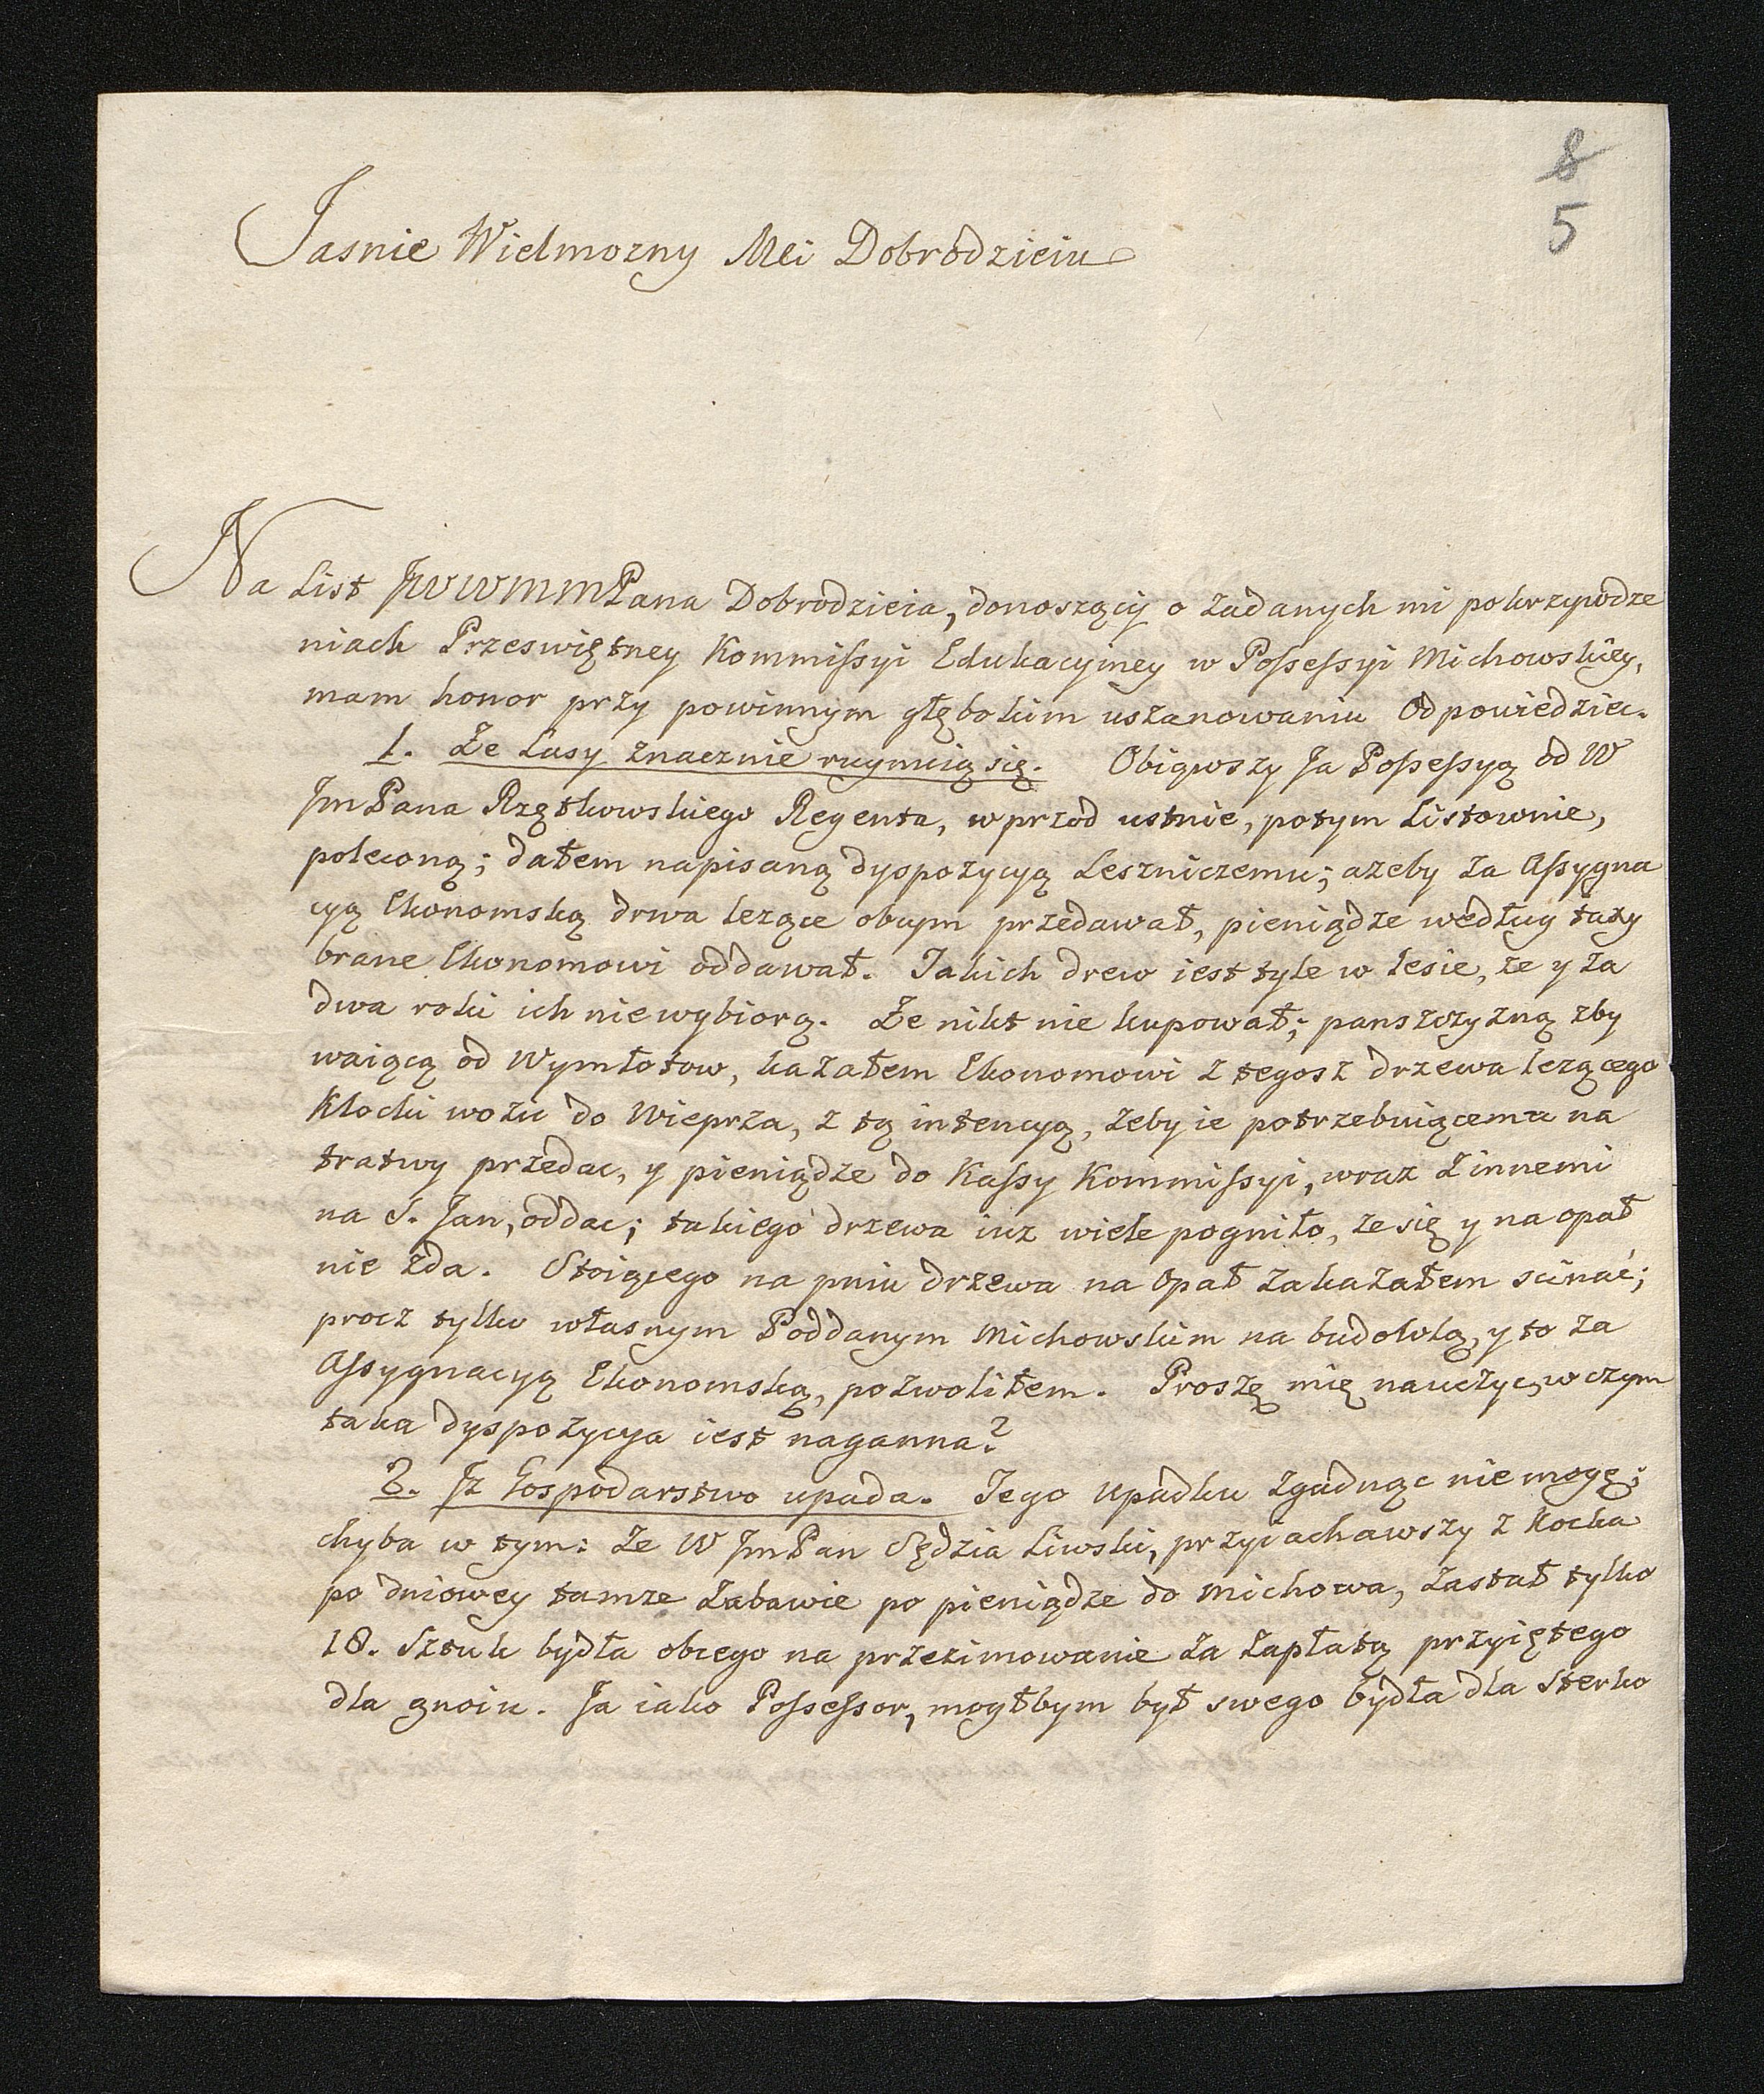 8
5
Jasnie Wielmozny Mci Dobrodzieiu
Na List JWWMMPana Dobrodzieia, donoszący o zadanych mi pokrzywdze
niach Przeswiętney Kommissyi Edukacyiney w Possessyi Michowskiey,
mam honor przy powinnym głębokim uszanowaniu Odpowiedziec.
1. Ze Lasy znacznie ruynuią się. Obiąwszy Ja Possessyą od W
JmPana Rzętkowskiego Regenta, wprzod ustnie, potym Listownie,
poleconą; dałem napisaną dyspozycyą Leszniczemu; azeby za Assygna
cyą Ekonomską drwa lezące obcym przedawał, pieniądze według taxy
brane Ekonomowi oddawał. Takich drew iest tyle w lesie, ze y za
dwa roki ich niewybiorą. Ze nikt nie kupował; panszczyzną zby
waiącą od Wymłotow, kazałem Ekonomowi z tegosz drzewa lezącego
Klocki wozic do Wieprza, z tą intencyą, zeby ie potrzebuiącemu na
tratwy przedac, y pieniądze do Kassy Kommissyi, wraz z innemi
na S. Jan, oddac; takiego drzewa iuz wiele pogniło, ze się y na opał
nie zda. Stoiącego na pniu drzewa na Opał zakazałem scinać;
procz tylko własnym Poddanym Michowskim na budowlą, y to za
Assygnacyą Ekonomską, pozwoliłem. Proszę mię nauczyc, w czym
taka dyspozycya iest naganna?
2. Jz Gospodarstwo upada. Tego Upadku zgadnąc nie mogę;
chyba w tym: ze W JmPan Sędzia Liwski, przyiachawszy z Kocka
po dniowey tamze zabawie po pieniądze do Michowa, zastał tylko
18. Sztuk bydła obcego na przezimowanie za zapłatą przyiętego
dla gnoiu. Ja iako Possessor, mogłbym był swego bydła dla Sterko